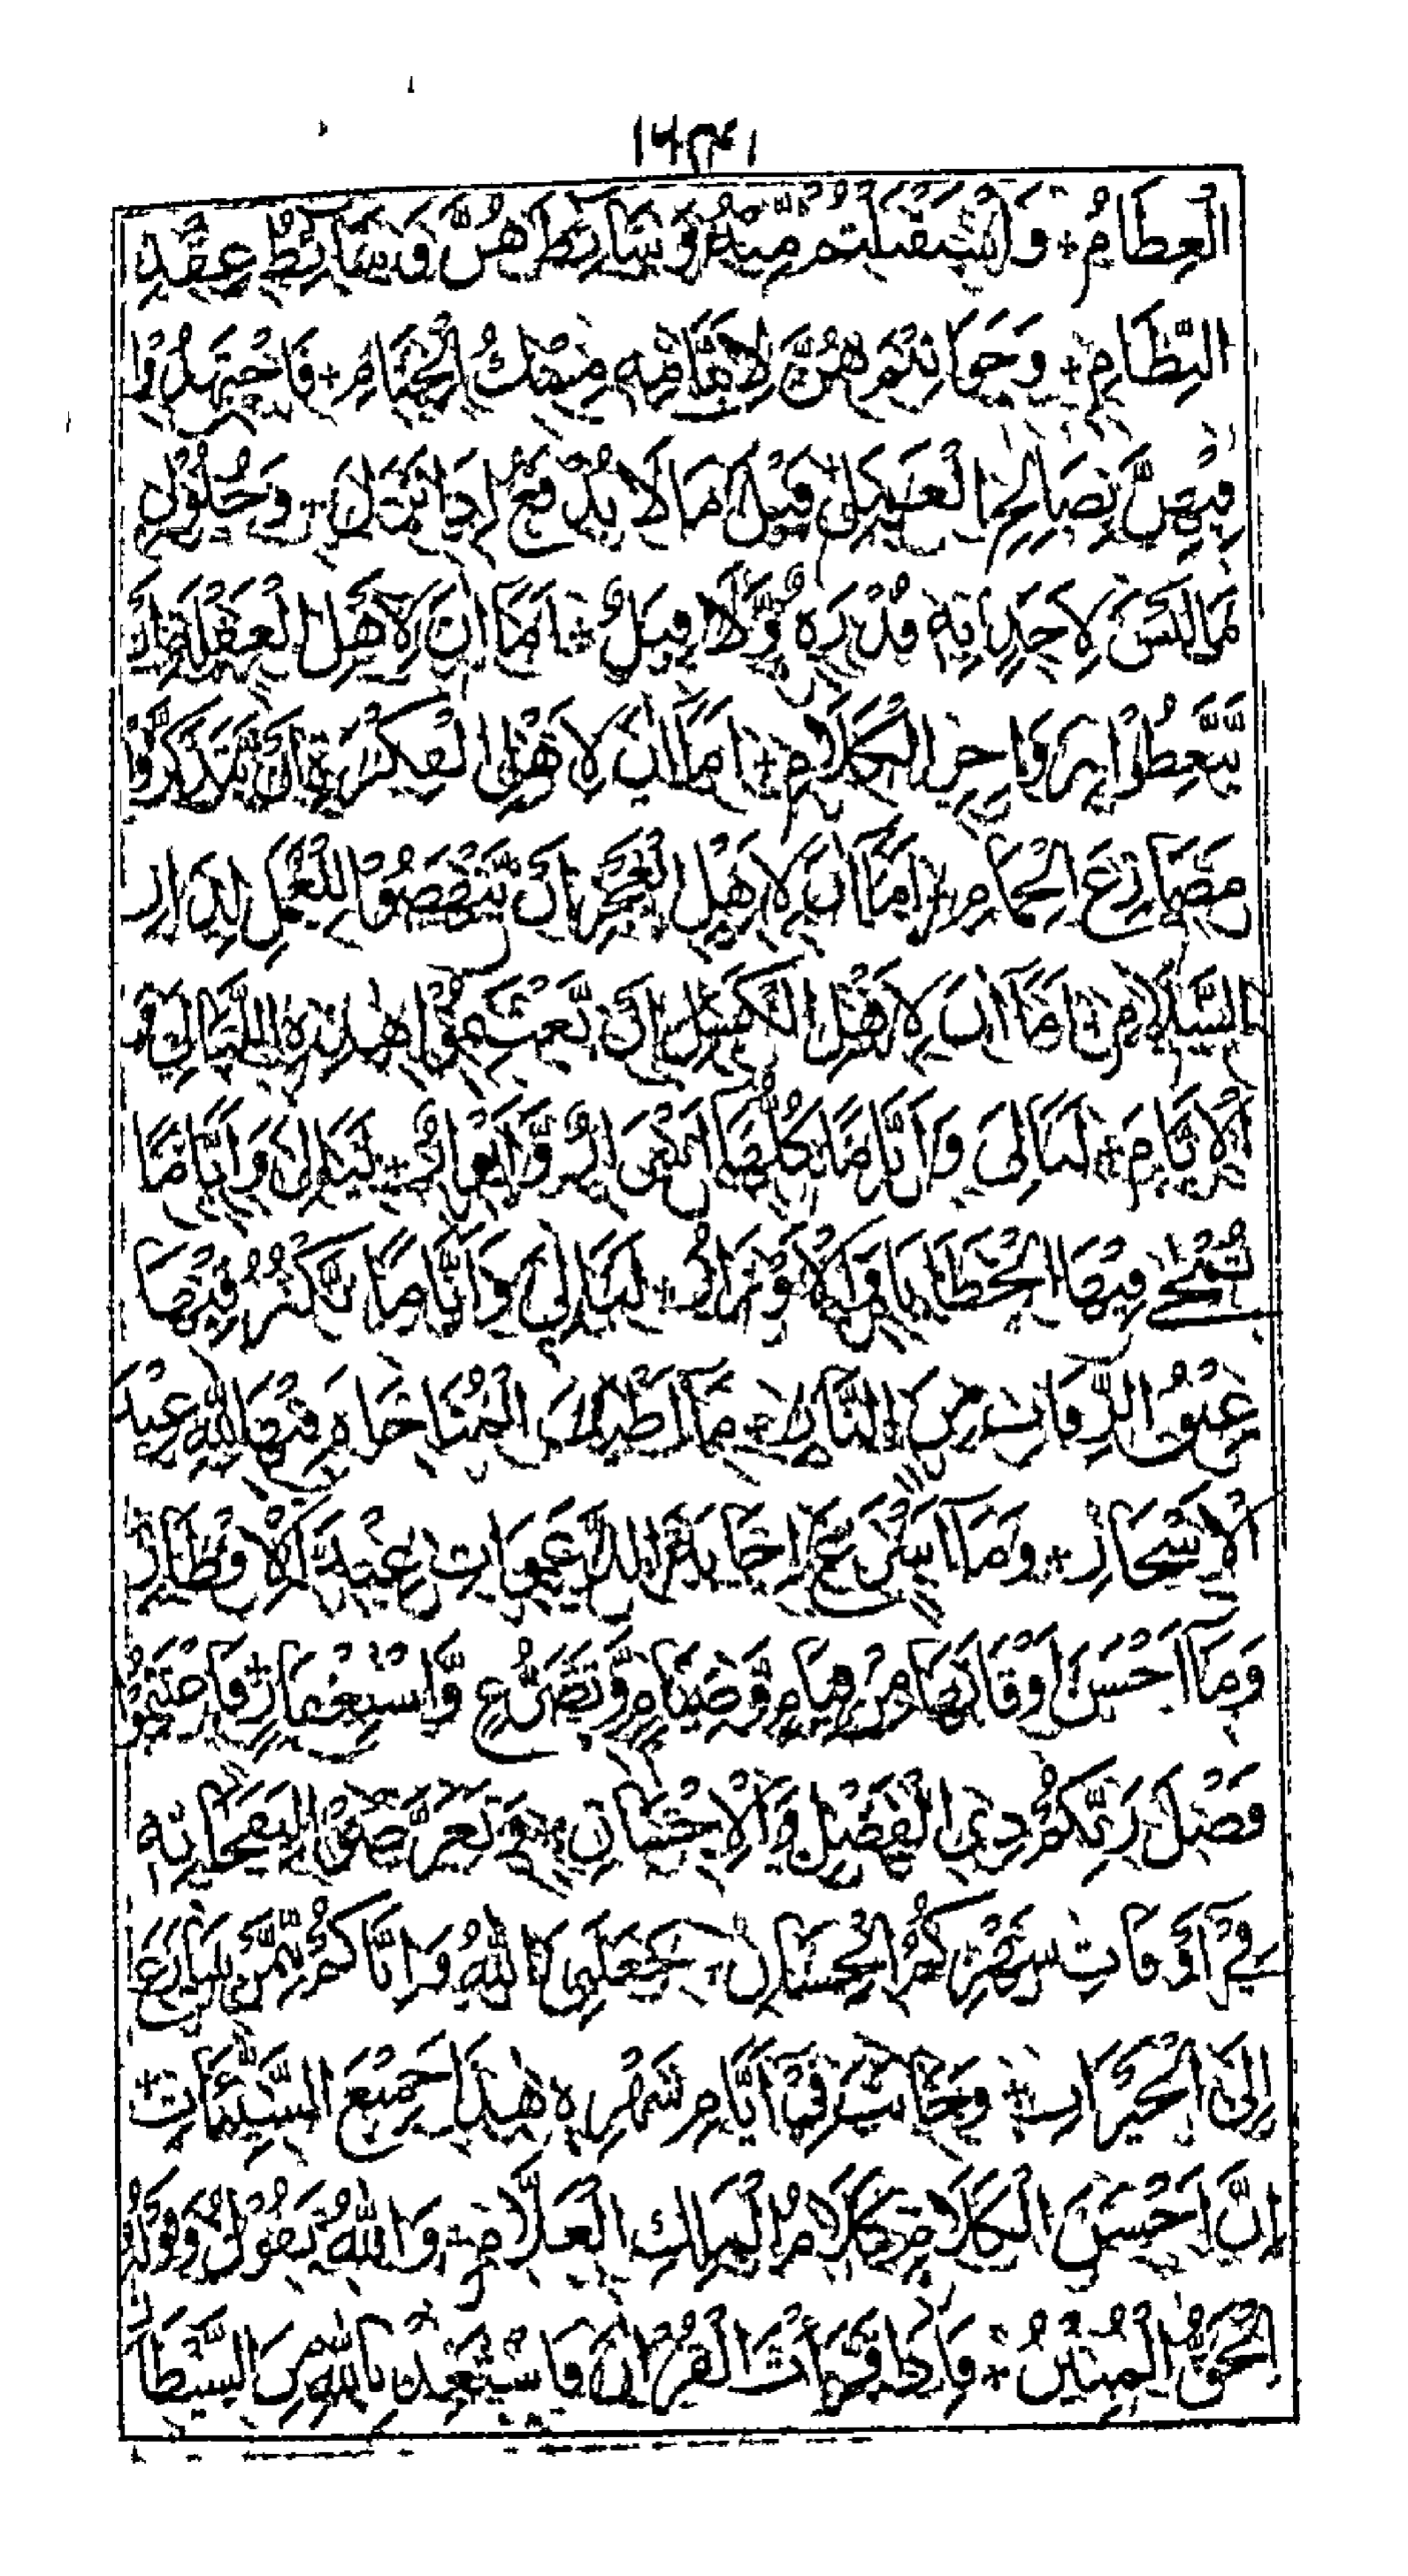 العِظَامُ + وَاسْتَقْبَلْتُمْ مِنْهُ وَسَائِطَ هُنَّ وَسَائِطُ عِقْدِ
النِّظَامِ + وَخَوَاتِمَ هُنَّ لِأَيَّامِهِ مِسْكُ الْخِتَامِ + فَاجْتَهِدُوْا
فِيْهِنَّ بِصَالِحِ الْعَمَلِ قَبْلَ مَا لَا يُدْفَعُ إِذَا نَزَلَ + وَحُلُوْلِ
مَا لَيْسَ لِأَحَدٍ بِهٖ قُدْرَةٌ وَّلَا قِبَلٌ + اَمَا اٰنَ لِأَهْلِ الْغَفْلَةِ اَنْ
يَّتَّعِظُوْا بِزَوَاجِرِ الْكَلَامِ + اَمَا اٰنَ لِأَهْلِ الْفِكْرَةِ اَنْ يَّتَذَكَّرُوْا
مَصَارِعَ الْحِمَامِ + اَمَا اٰنَ لِأَهْلِ الْعَجْزِ اَنْ يَّنْهَضُوْا لِلْعَمَلِ لِدَارِ
السَّلَامِ + اَمَا اٰنَ لِأَهْلِ الْكَسَلِ اَنْ يَّغْتَنِمُوْا هٰذِهِ اللَّيَالِيَ وَ
الْاَيَّامَ + لَيَالِيَ وَاَيَّامًا كُلُّهَا اَسْرَارٌ وَّاَنْوَارٌ + لَيَالِيَ وَاَيَّامًا
تُمْحٰى فِيْهَا الْخَطَايَا وَالْاَوْزَارُ + لَيَالِيَ وَاَيَّامًا يَكْثُرُ فِيْهَا
عِتْقُ الرِّقَابِ مِنَ النَّارِ + مَا اَطْيَبَ الْمُنَاجَاةَ فِيْهَا لِلّٰهِ عِنْدَ
الْاَسْحَارِ + وَمَا اَسْرَعَ اِجَابَةَ الدَّعَوَاتِ عِنْدَ الْاِفْطَارِ
وَمَا اَحْسَنَ اَوْقَاتَهَا مِنْ قِيَامٍ وَّصِيَامٍ وَّتَضَرُّعٍ وَّاسْتِغْفَارٍ +
فَضْلَ رَبِّكُمْ ذِي الْفَضْلِ وَالْاِحْسَانِ + وَتَعَرَّضُوْا لِنَفَحَاتِهٖ
فِيْ اَوْقَاتِ شَهْرِكُمُ الْحِسَانِ + جَعَلَنِيَ اللّٰهُ وَاِيَّاكُمْ مِّمَّنْ سَارَعَ
اِلَى الْخَيْرَاتِ + وَجَانَبَ فِيْ اَيَّامِ شَهْرِهٖ هٰذَا جَمِيْعَ السَّيِّئَاتِ +
اِنَّ اَحْسَنَ الْكَلَامِ كَلَامُ الْمَلِكِ الْعَلَّامِ + وَاللّٰهُ يَقُوْلُ وَقَوْلُهُ
الْحَقُّ الْمُبِيْنُ + فَاِذَا قَرَأْتَ الْقُرْاٰنَ فَاسْتَعِذْ بِاللّٰهِ مِنَ الشَّيْطَانِ